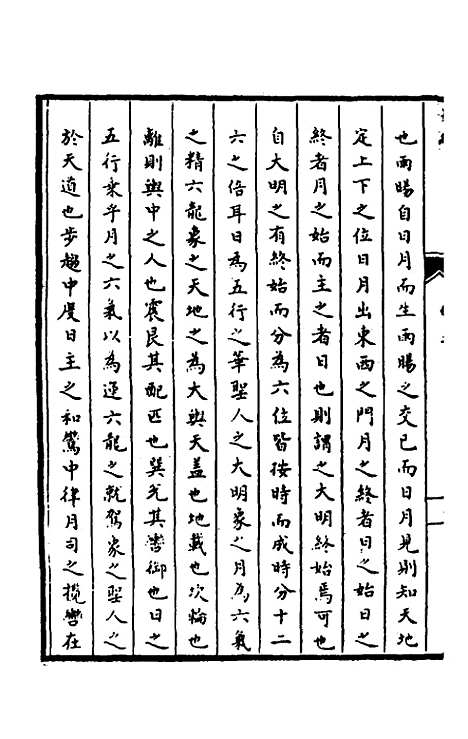 也雨暘自日月而生雨暘之交已而日月見則知天地
定上下之位日月出東西之門月之終者日之始日之
終者月之始而主之者日也則謂之大明終始焉可也
自大明之有終始而分為六位皆按時而成時分十二
六之倍耳日為五行之華聖人之大明象之月為六氣
之精六龍象之天地之為大輿天蓋也地載也次輪也
離則輿中之人也震艮其配匹也巽兌其轡御也日之
五行乘乎月之六氣以為運六龍之就駕象之聖人之
於天道也步趨中度日主之和鸞中律月司之攬轡在